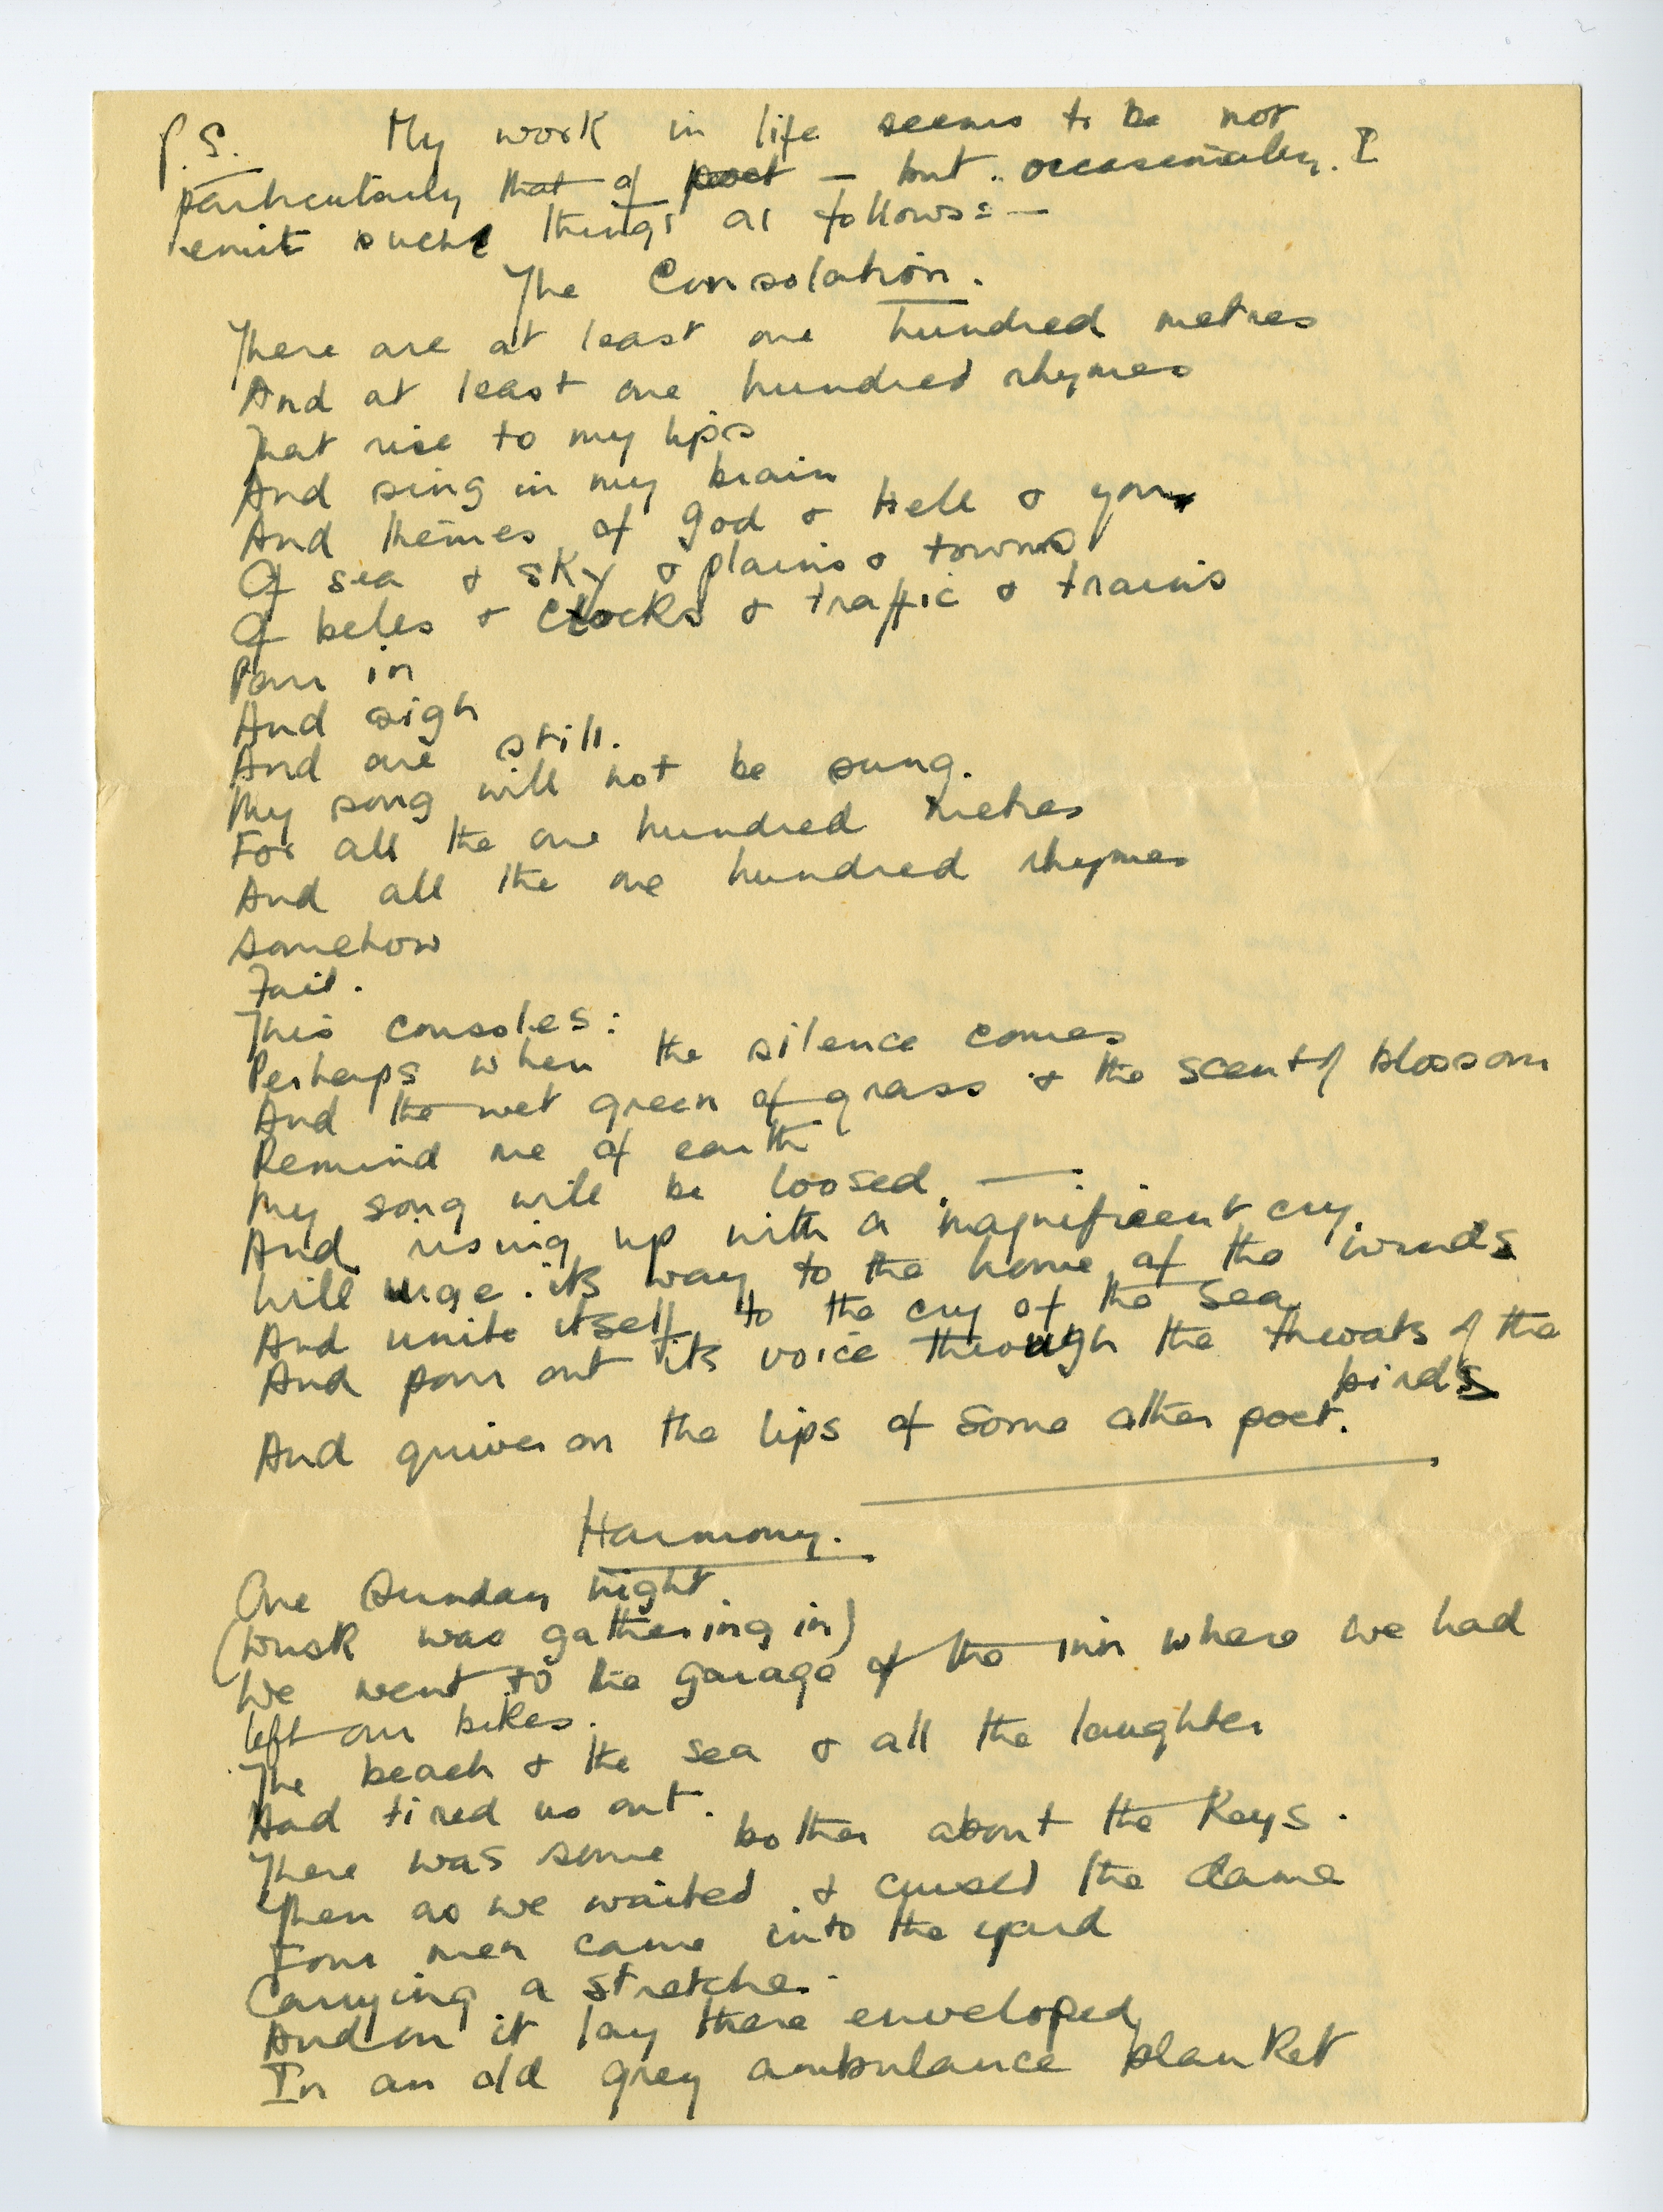 P.S. My work in life seems to be not
particularly that of poet – but occasionally I
emit such things as follows:–
The Consolation.
There are at least one hundred metres
And at least one hundred rhymes
That rise to my lips
And sing in my brain
And themes of God & Hell & you
Of sea & sky & plains & towns
Of bells & clocks & traffic & trains
Pour in
And sigh
And are still.
My song will not be sung.
For all the one hundred metres
And all the one hundred rhymes
Somehow
Fail.
This consoles:
Perhaps when the silence comes
And the wet green of grass & the scent of blossom
Remind me of earth
My song will be loosed. —
And rising up with a magnificent cry
Will urge its way to the home of the winds
And unite itself to the cry of the sea
And pour out its voice through the throats of the
birds
And quiver on the lips of some other poet.
Harmony.
One Sunday night
(Dusk was gathering in)
We went to the garage of the inn where we had
left our bikes.
The beach & the sea & all the laughter
Had tired us out.
There was some bother about the keys.
Then as we waited & cursed the dame
Four men came into the yard
Carrying a stretcher.
And on it lay there enveloped
In an old grey ambulance blanket